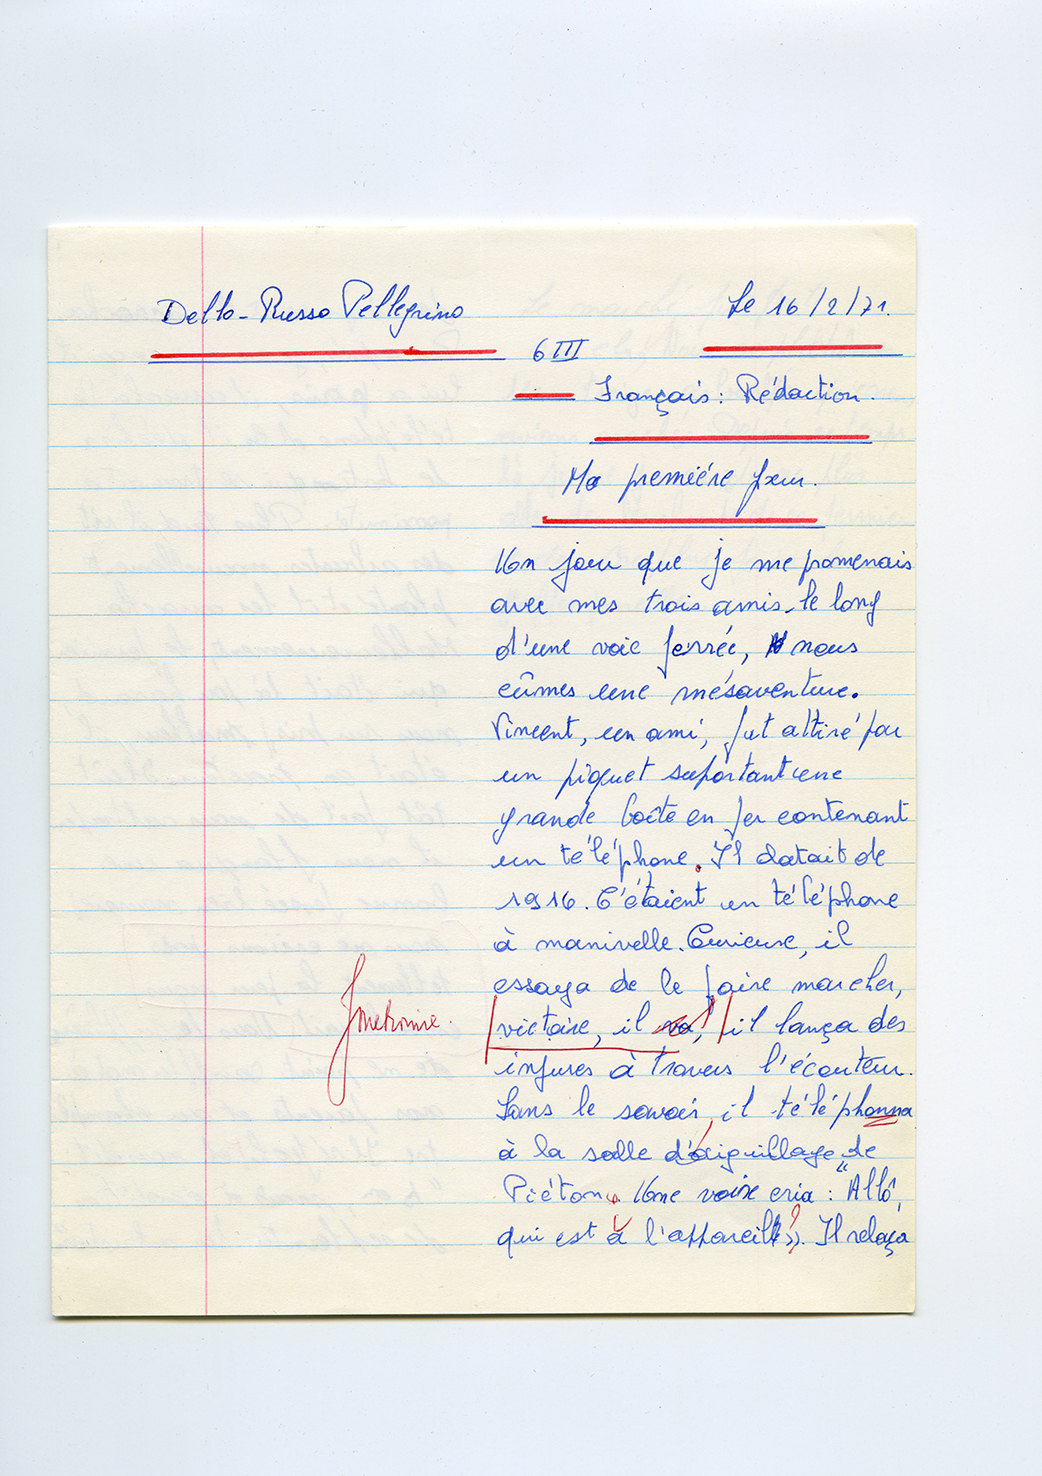 Dello-Russo Pellegrino
Le 16/2/71.
6 III
Français : Rédaction.
Ma premiére peur.
Un jour que je me promenais
avec mes trois amis le long
d'une voie ferrée, nous
eûmes une mésaventure.
Vincent, un ami, fut attiré par
un piquet suportant une
grande boîte en fer contenant
un téléphone. Il datait de
1916. C'étaient un téléphone
à manivelle. Curieuse, il
essaya de le faire marcher,
victoire, il va, il lança des
injures à travers l'écouteur.
Sans le savoir, il téléphonna
à la salle d'aiguillage de
Piéton. Une voix cria : "Allô,
qui est à l'appareil ?". Il relaça